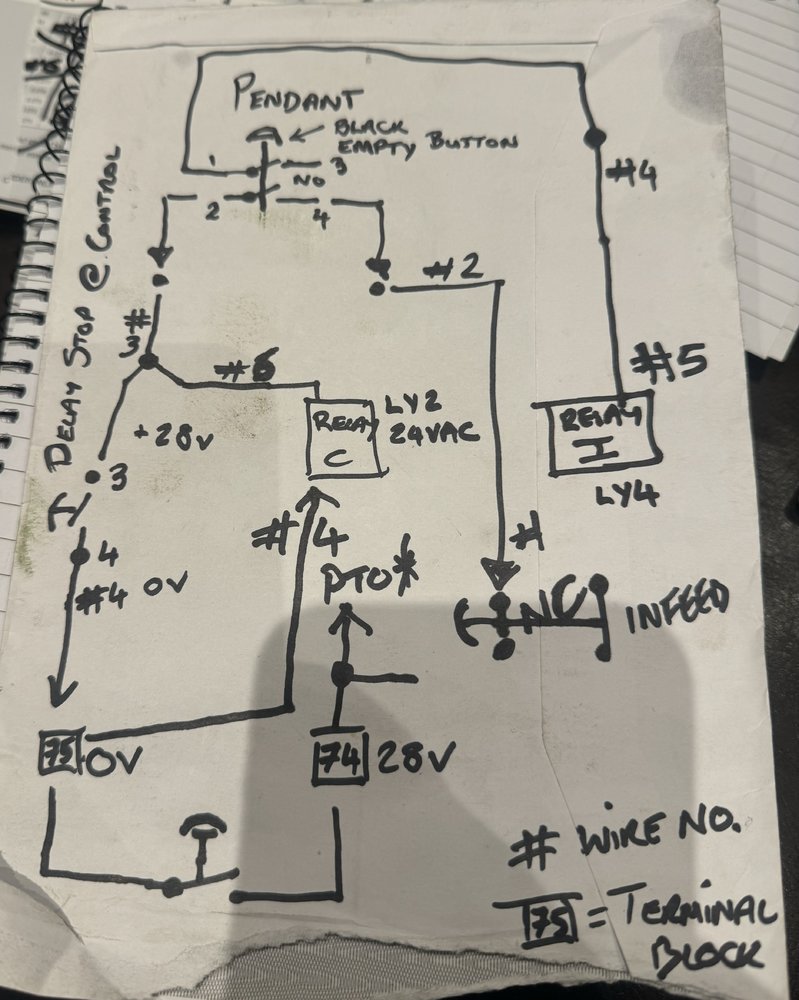 PENDANT
BLACK
EMPTY BUTTON
1
3
NO
2
4
#4
DELAY STOP @ CONTROL
#2
3#
#6
#5
+28V
RELAY
C
LY2
24VAC
RELAY
I
LY4
3
4
#4 0V
#4
#1
PTO*
NC
INFEED
75
0V
74
28V
# WIRE NO.
75 = TERMINAL
BLOCK